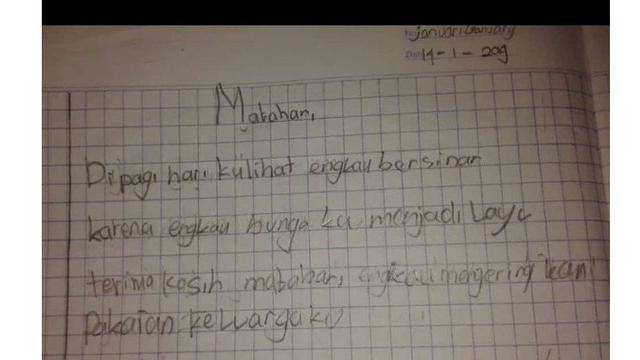 januari/January
14-1-209
Matahari,
Di pagi hari kulihat engkau bersinar
karena engkau bunga ku menjadi Layu
terima kasih matahari engkau mengering kan
Pakaian keluargaku